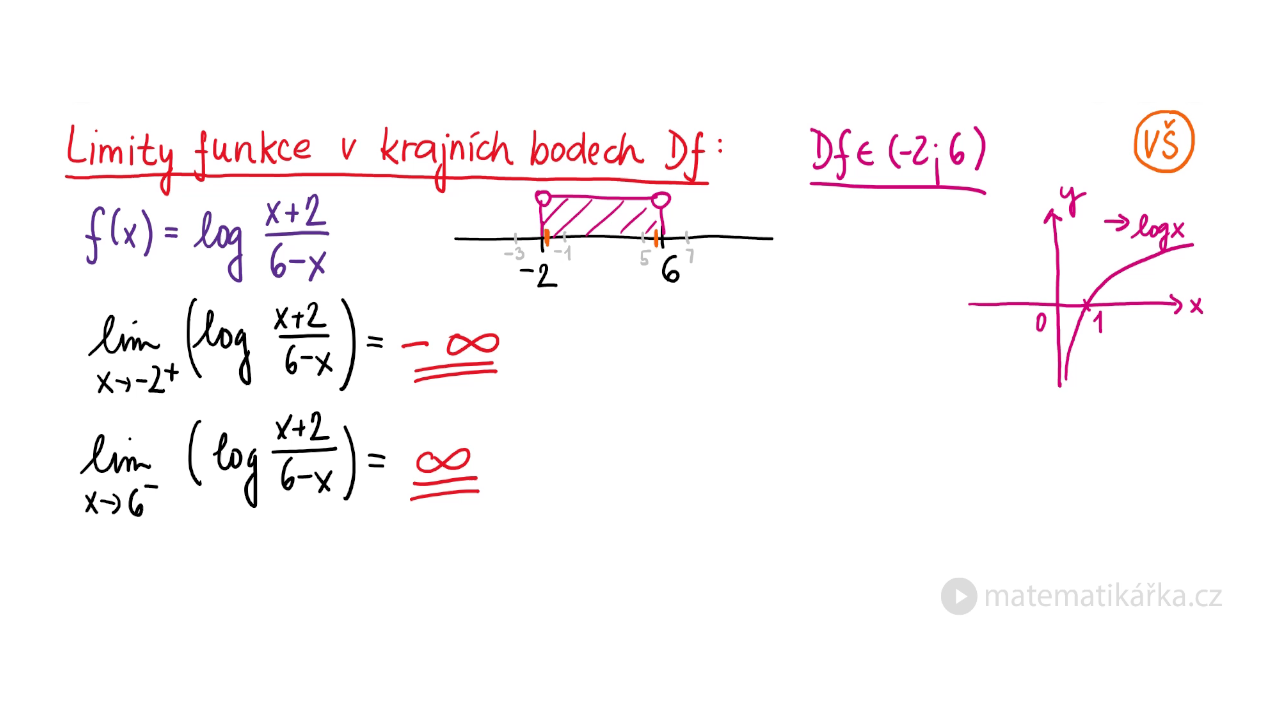 Limity funkce v krajních bodech Df:
Df ∈ (-2; 6)
VŠ
f(x) = log (x+2)/(6-x)
-3 -2 -1 5 6 7
y
→ log x
0 1 x
lim x→-2⁺ (log (x+2)/(6-x)) = -∞
lim x→6⁻ (log (x+2)/(6-x)) = ∞
matematikářka.cz